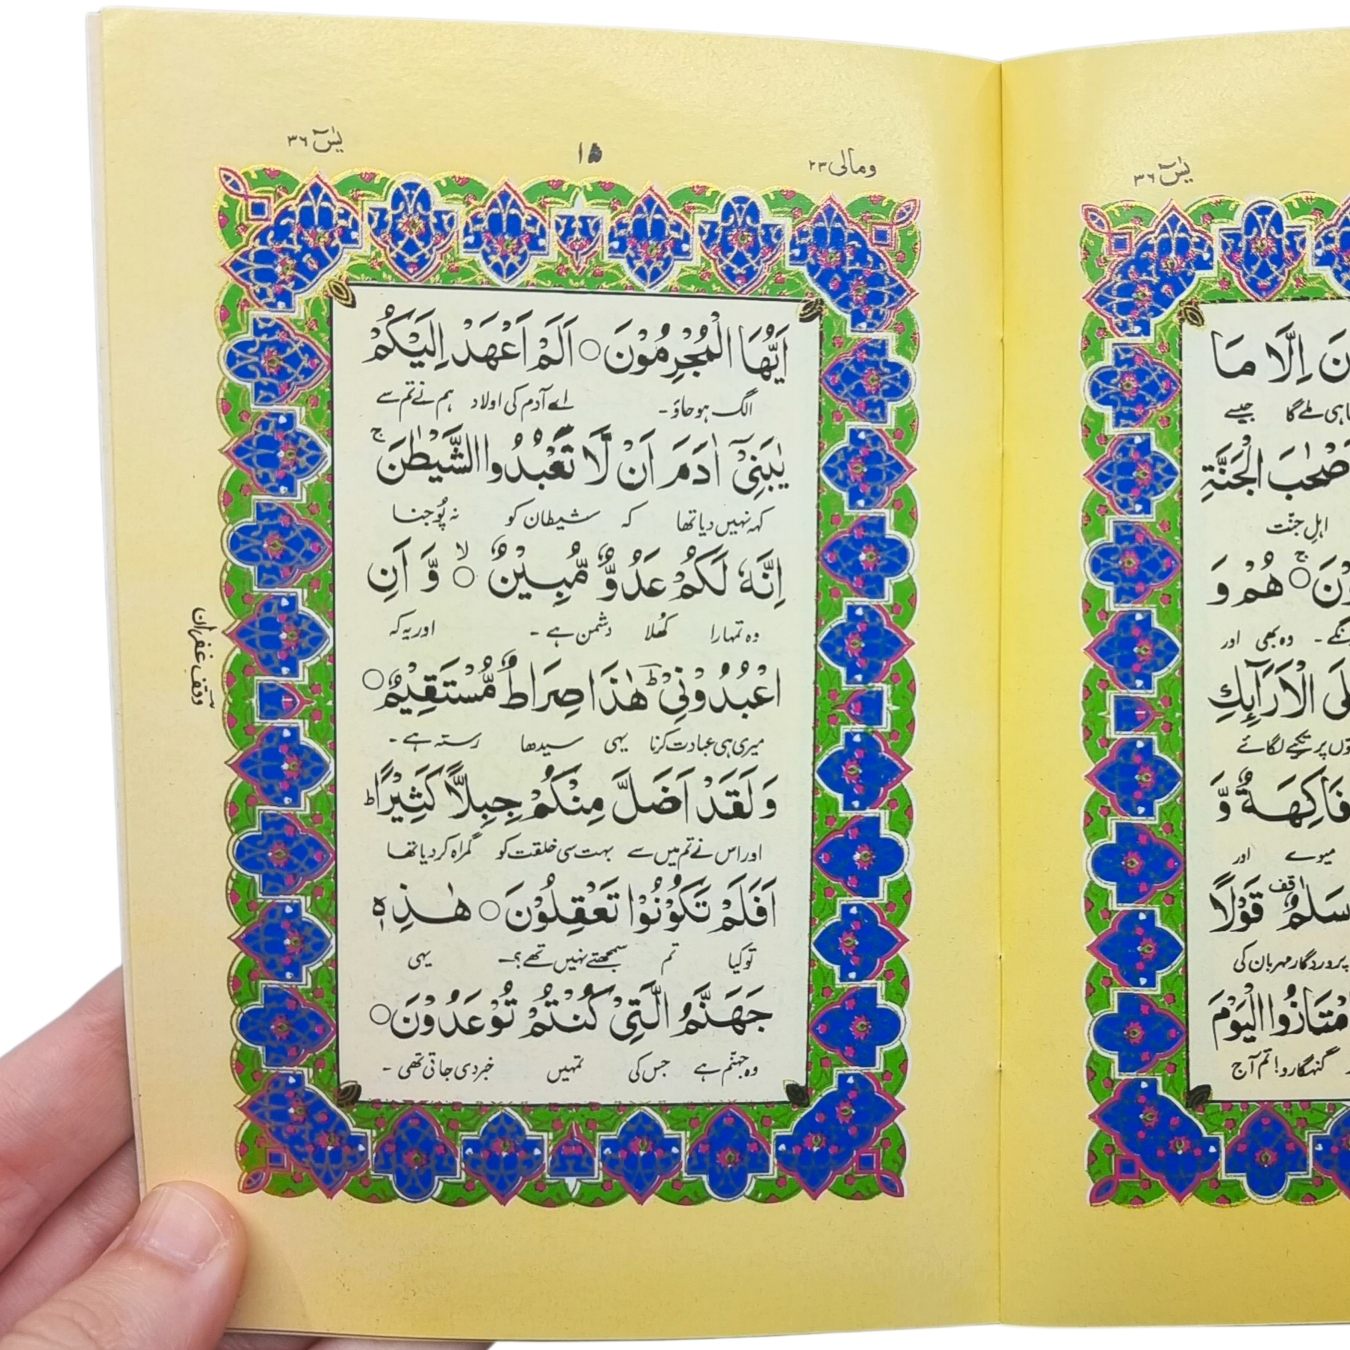 یٰسٓ ۳۶
ومالی ۲۳
۱۵
یٰسٓ ۳۶
نَ اِلَّا مَا
ہی ملے گا جیسے
صْحٰبَ الْجَنَّةِ
اہلِ جنّت
وْنَ ○ۚ هُمْ وَ
گے ۔ وہ بھی اور
لَى الْاَرَآىِٕكِ
وں پر تکیے لگائے
فَاكِهَةٌ وَّ
میوے اور
سَلٰمٌ قف قَوْلًا
پروردگار مہربان کی
مْتَازُوا الْيَوْمَ
گنہگارو! تم آج
اَيُّهَا الْمُجْرِمُوْنَ ○ اَلَمْ اَعْهَدْ اِلَيْكُمْ
الگ ہو جاؤ ۔ اے آدم کی اولاد ہم نے تم سے
يٰبَنِىْٓ اٰدَمَ اَنْ لَّا تَعْبُدُوا الشَّيْطٰنَ ۚ
کہہ نہیں دیا تھا کہ شیطان کو نہ پُوجنا
اِنَّهٗ لَكُمْ عَدُوٌّ مُّبِيْنٌ ○ۙ وَّ اَنِ
وہ تمہارا کھُلا دشمن ہے ۔ اور یہ کہ
اعْبُدُوْنِىْ ؕ هٰذَا صِرَاطٌ مُّسْتَقِيْمٌ ○
میری ہی عبادت کرنا یہی سیدھا رستہ ہے ۔
وَ لَقَدْ اَضَلَّ مِنْكُمْ جِبِلًّا كَثِيْرًا ؕ
اور اس نے تم میں سے بہت سی خلقت کو گمراہ کر دیا تھا
اَفَلَمْ تَكُوْنُوْا تَعْقِلُوْنَ ○ هٰذِهٖ
تو کیا تم سمجھتے نہیں تھے؟ ۔ یہی
جَهَنَّمُ الَّتِىْ كُنْتُمْ تُوْعَدُوْنَ ○
وہ جہنّم ہے جس کی تمہیں خبر دی جاتی تھی ۔
وقف غفران